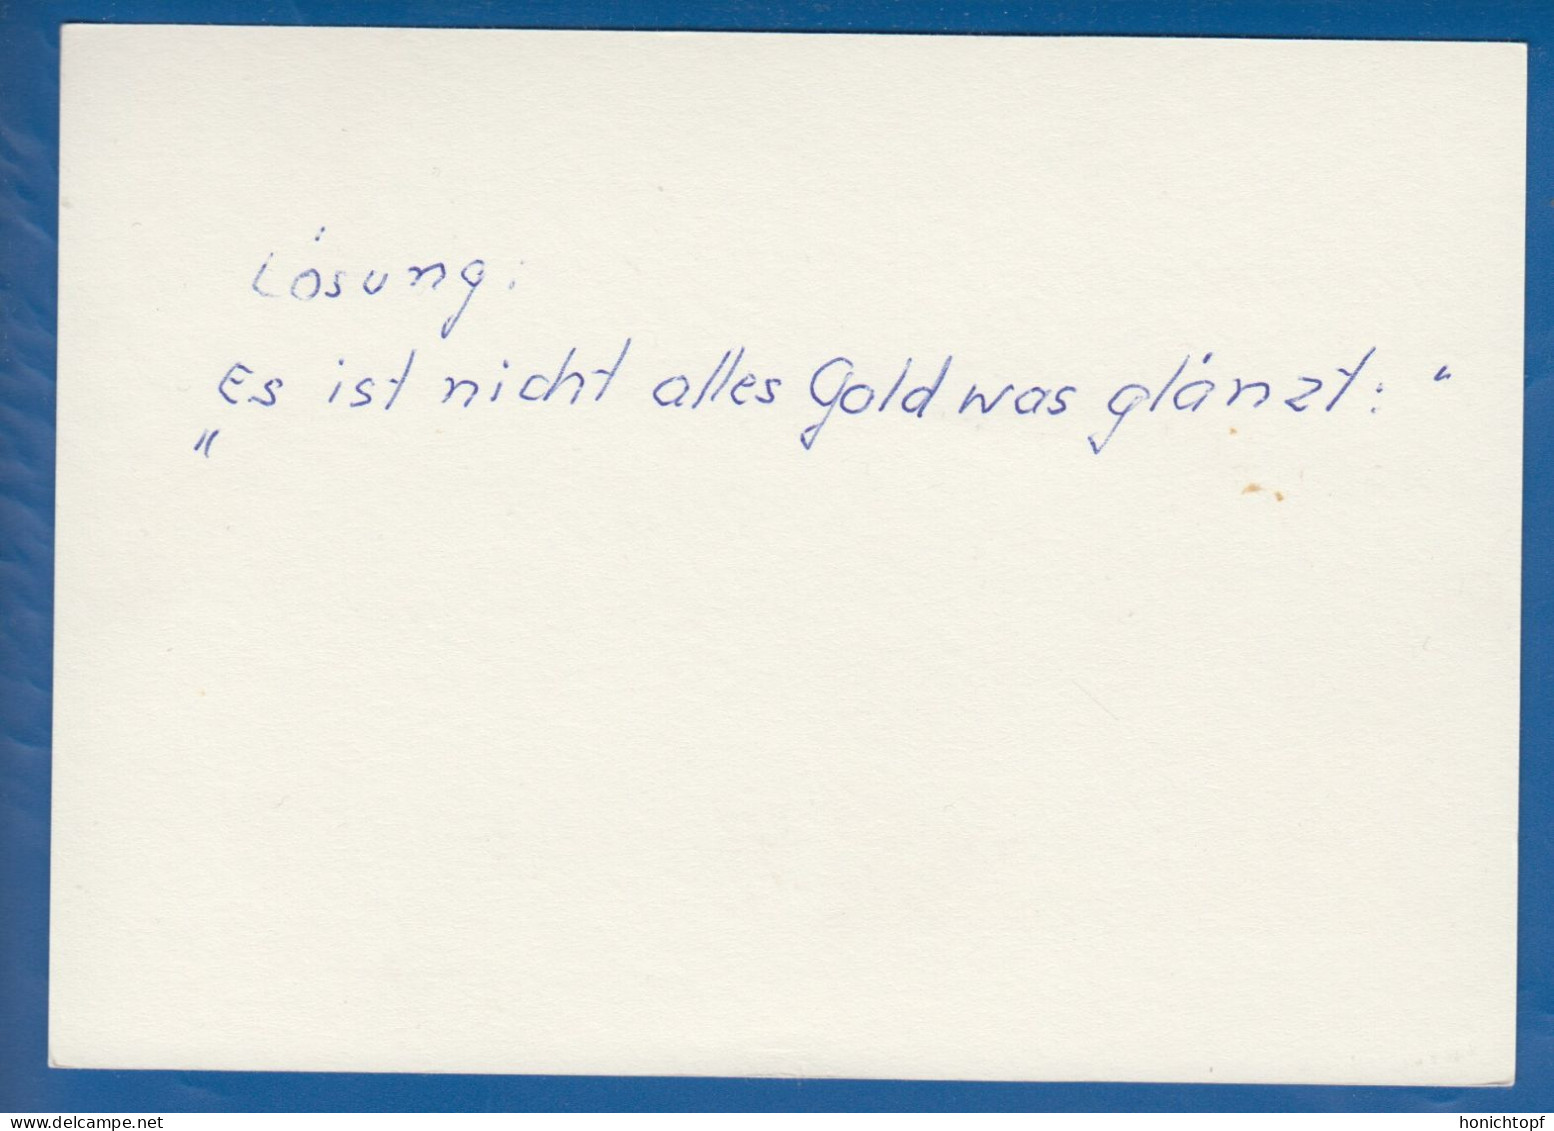 Lösung:
„Es ist nicht alles Gold was glänzt: “
www.delcampe.net
honichtopf